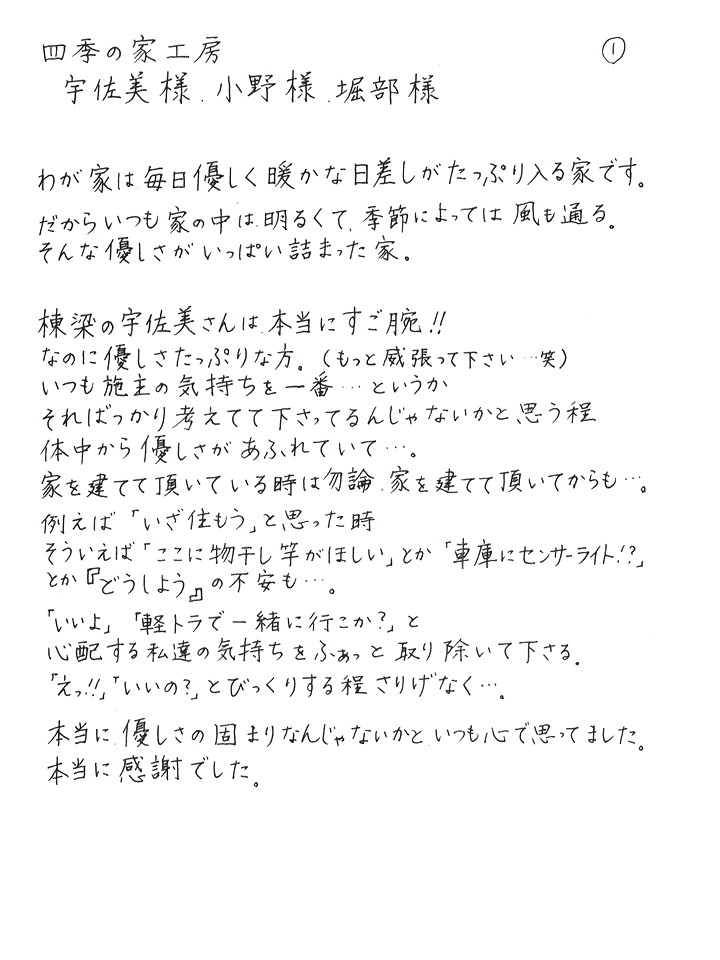 四季の家工房
①
宇佐美様、小野様、堀部様
わが家は毎日優しく暖かな日差しがたっぷり入る家です。
だからいつも家の中は明るくて、季節によっては風も通る。
そんな優しさがいっぱい詰まった家。
棟梁の宇佐美さんは、本当にすご腕!!
なのに優しさたっぷりな方。(もっと威張って下さい…笑)
いつも施主の気持ちを一番…というか
そればっかり考えてて下さってるんじゃないかと思う程
体中から優しさがあふれていて…。
家を建てて頂いている時は勿論、家を建てて頂いてからも…。
例えば「いざ住もう」と思った時
そういえば「ここに物干し竿がほしい」とか「車庫にセンサーライト!?」
とか『どうしよう』の不安も…。
「いいよ」「軽トラで一緒に行こか?」と
心配する私達の気持ちをふぁっと取り除いて下さる。
「えっ!!」「いいの?」とびっくりする程さりげなく…。
本当に、優しさの固まりなんじゃないかと、いつも心で思ってました。
本当に感謝でした。